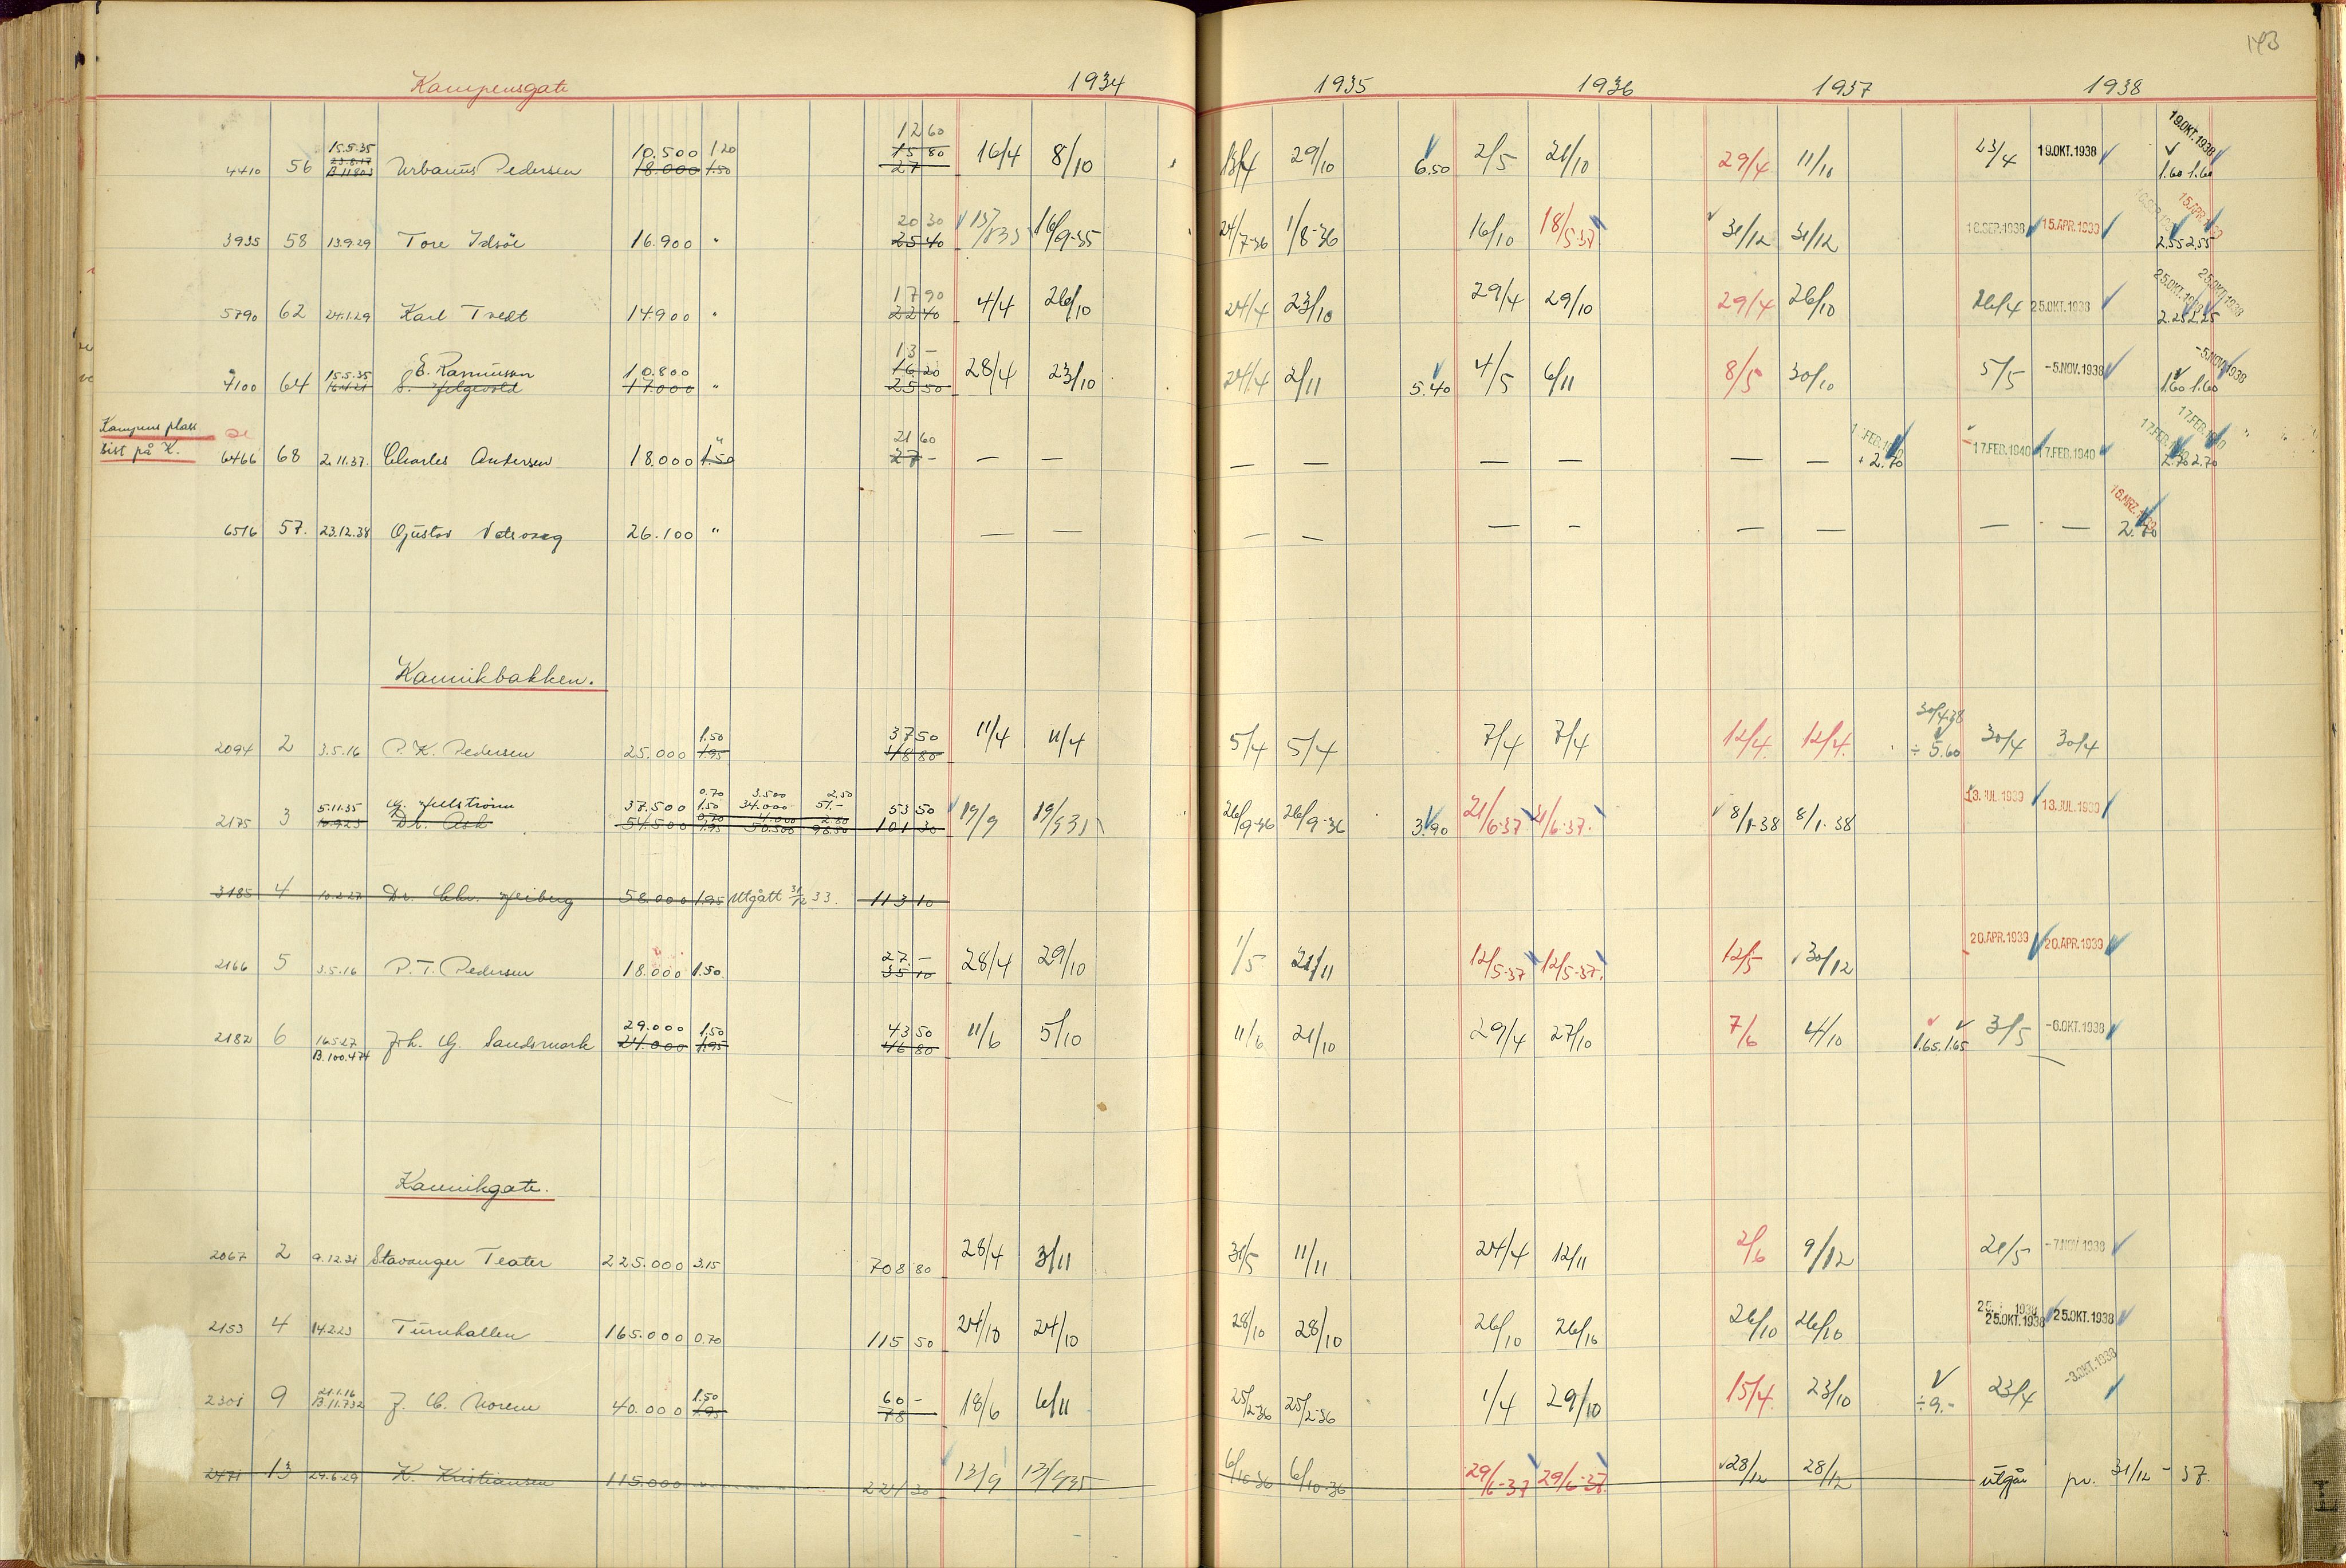 143
Kampensgate 1934 1935 1936 1937 1938
12 60
15.5.35 10.500 1.20 15 80 19.OKT.1938
4410 56 23.8.17 B.11803 Urbanus Pedersen 18.000 1.50 27 16/4 8/10 29/10 6.50 2/5 21/10 29/4 11/10 23/4 19.OKT.1938 1.60 1.60
20 30
3935 58 13.9.29 Tore Idsöe 16.900 " 25 40 16/9-35 24/7-36 1/8-36 16/10 18/5-37 31/12 31/12 15.APR.1939 2.55 2.55
17 90 25.OKT.1938 25.OKT.1938
5790 62 24.1.29 Karl Tvedt 14.900 " 22 40 4/4 26/10 24/4 23/10 29/4 29/10 29/4 26/10 26/4 25.OKT.1938 2.25 2.25
13 -
15.5.35 E. Rasmussen 10.800 16 20 -5.NOV.1938
4100 64 17.000 " 25 50 28/4 23/10 24/4 2/11 5.40 4/5 6/11 8/5 30/10 5/5 -5.NOV.1938 1.60 1.60
Kampens plass
sist på K.
" 21 60 17.FEB.1940 17.FEB.1940
6466 68 2.11.37. Charles Andersen 18.000 1.50 27 - — — — — — — — — + 2.70 17.FEB.1940 17.FEB.1940 2.70 2.70
6516 57. 23.12.38 Gustav 26.100 " — — — — — — — — — — 2.70
Kannikbakken.
1.50 37 50 30/4-38
2094 2 3.5.16 P. K. Pedersen 25.000 1.95 48 80 11/4 11/4 5/4 5/4 7/4 7/4 12/4. 12/4. ÷ 5.60 30/4 30/4
0.70 3.500 2.50
5.11.35 37.500 1.50 34.000 51.- 53 50
2175 3 10.9.23 Dr. Ask 54.500 0.70 1.95 4.000 50.500 2.80 98.50 101 30 19/9 19/9 35 26/9-36 26/9-36 3.90 21/6-37 21/6-37. 8/1-38 8/1-38 13.JUL.1939 13.JUL.1939
3185 4 10.2.27 Dr. Chr. Heiberg 58.000 1.95 Utgått 31/12 33. 113 10
27. -
2166 5 3.5.16 P. T. Pedersen 18.000 1.50. 35 10 28/4 29/10 1/5 21/11 12/5-37 12/5-37. 12/5 30/12 20.APR.1939 20.APR.1939
29.000 1.50 43 50
2182 6 16.5.27 B.100.474 Joh. G. Sandsmark 24.000 1.95 46 80 11/6 5/10 11/6 21/10 29/4 27/10 7/6 4/10 1.65. 1.65 3/5 -6.OKT.1938
Kannikgate.
2067 2 9.12.31 Stavanger Teater 225.000 3.15 708 80 28/4 3/11 31/5 11/11 24/4 12/11 2/6 9/12 21/5 -7.NOV.1938
2153 4 14.2.23 Turnhallen 165.000 0.70 115 50 24/10 24/10 28/10 28/10 26/10 26/10 26/10 26/10 25.OKT.1938 25.OKT.1938
21.1.16 1.50 60 - -3.OKT.1938
2301 9 B.11.732 J. C. Norem 40.000 1.95 78 18/6 6/11 25/2-36 25/2-36 1/4 29/10 15/4. 23/10 ÷ 9.- 23/4
2471 13 29.6.29 K. Kristiansen 115.000 " 224 30 13/9 13/9 35 6/10-36 6/10-36 29/6-37 29/6-37. 28/12 28/12 utgår pr. 31/12 - 37.